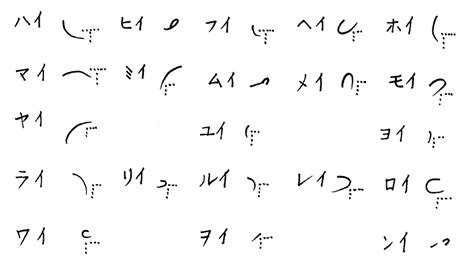 ハイ ヒイ フイ ヘイ ホイ
マイ ミイ ムイ メイ モイ
ヤイ ユイ ヨイ
ライ リイ ルイ レイ ロイ
ワイ ヲイ ンイ